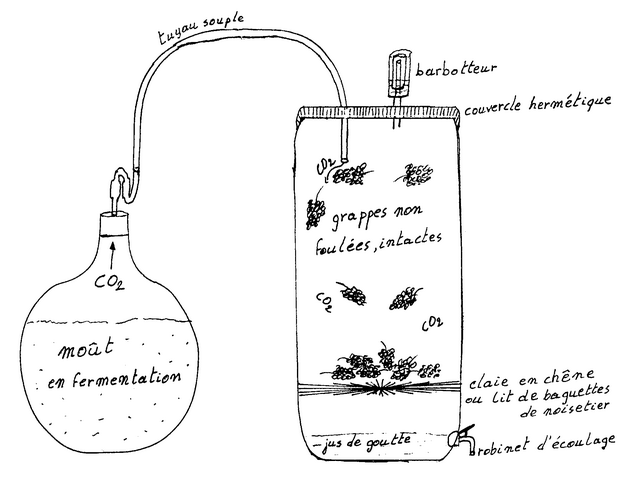 tuyau souple
barbotteur
couvercle hermétique
CO2
grappes non
foulées, intactes
CO2
CO2
CO2
moût
en fermentation
claie en chêne
ou lit de baguettes
de noisetier
jus de goutte
robinet d'écoulage